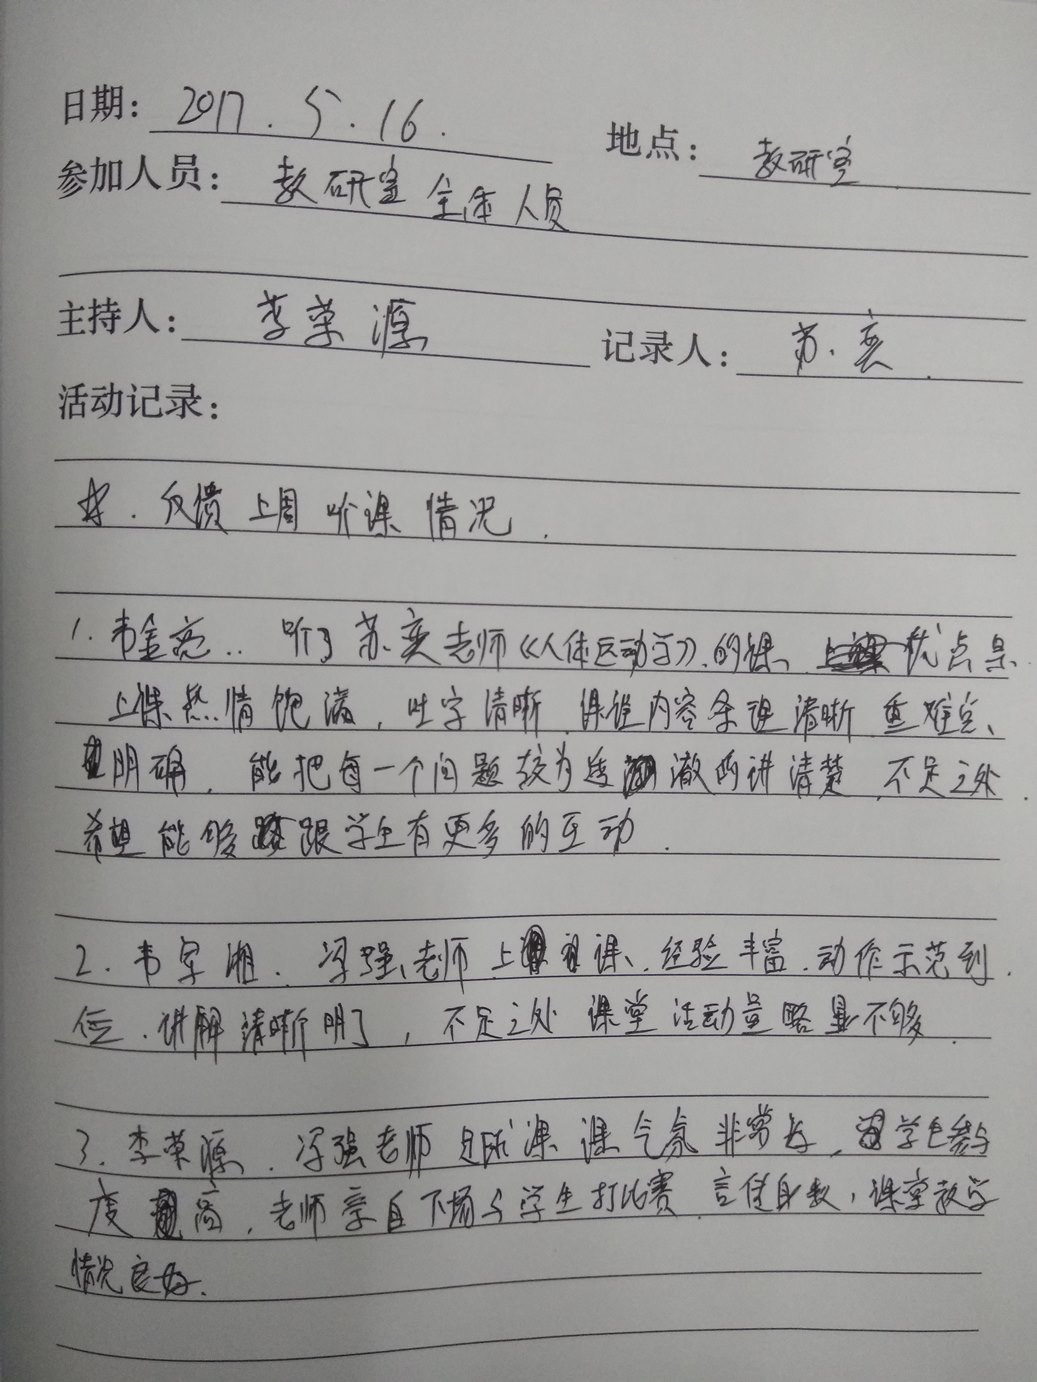 日期：2017.5.16.
地点：教研室
参加人员：教研室全体人员
主持人：李荣源
记录人：苏奕.
活动记录：
反馈上周听课情况.
1.韦金亮..听了苏奕老师《人体运动学》.的课、优点是
上课热情饱满，吐字清晰.课程内容条理清晰 重难点、
明确，能把每一个问题较为透澈的讲清楚.不足之处.
希望能够跟学生有更多的互动.
2.韦字湘.冯强老师上课.经验丰富.动作示范到
位.讲解清晰明了，不足之处 课堂活动量略显不够.
3.李荣源.冯强老师足球课课气氛非常好，学生参与
度高，老师亲自下场与学生打比赛.言传身教，课堂教学
情况良好.